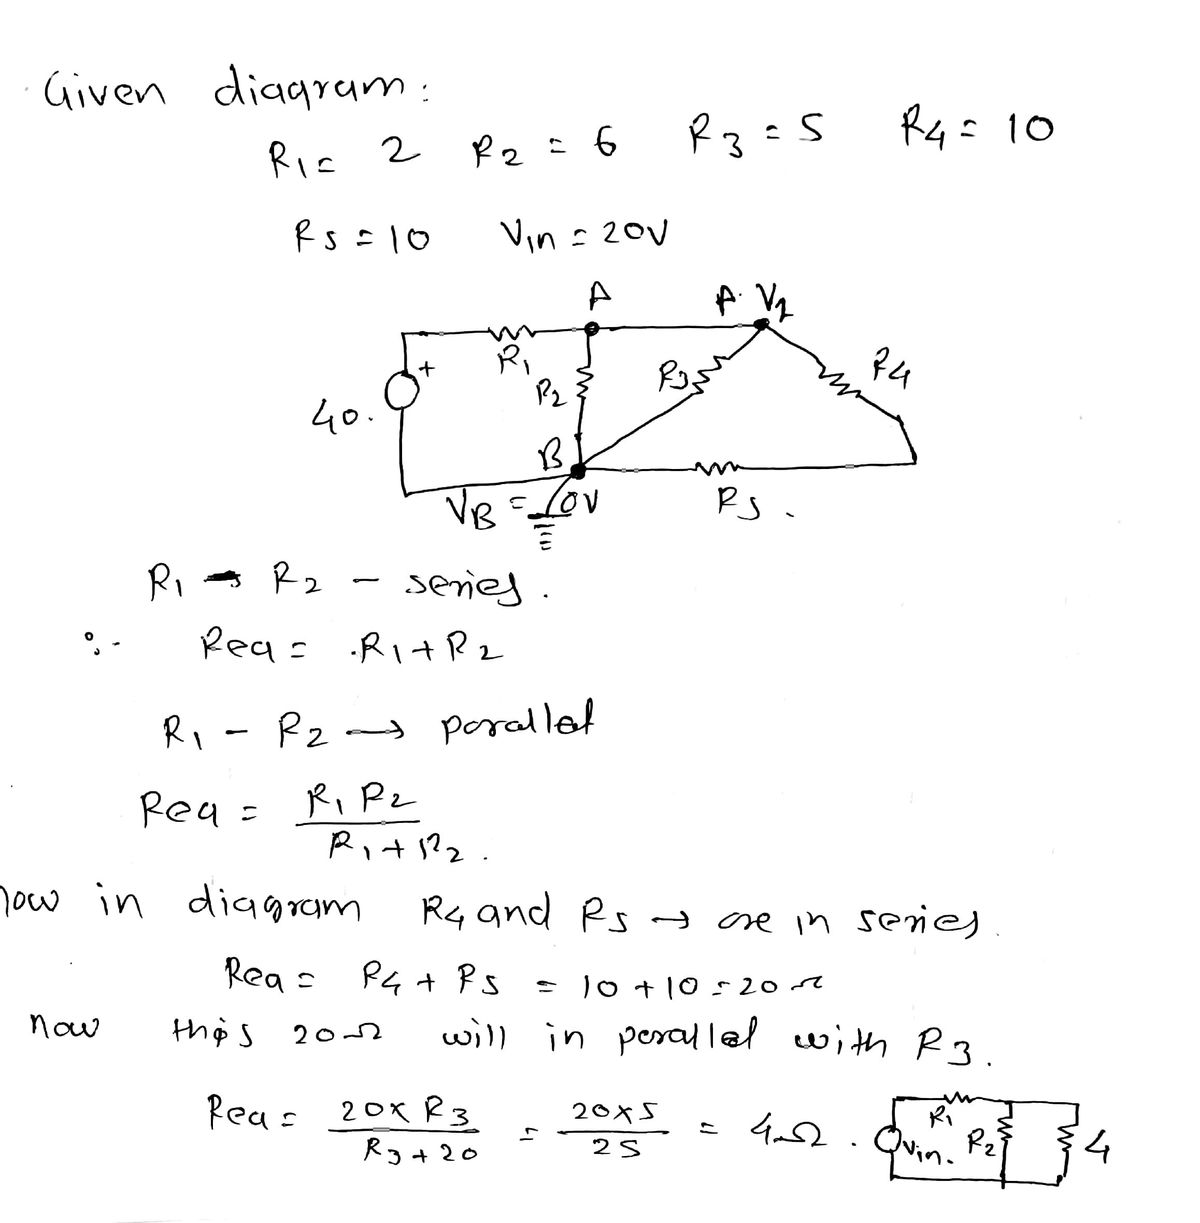 Given diagram:
R1 = 2 R2 = 6 R3 = 5 R4 = 10
R5 = 10 Vin = 20V
A A. V1
+ R1 R2 R3 R4
40.
B
VB = 0V R5.
R1 → R2 - series.
∴ Req = .R1 + R2
R1 - R2 → parallel
Req = R1 R2 / R1 + R2.
now in diagram R4 and R5 → are in series.
Req = R4 + R5 = 10 + 10 = 20 Ω
now this 20 Ω will in parallel with R3.
Req = 20 x R3 / R3 + 20 = 20 x 5 / 25 = 4 Ω.
R1
Vin. R2 4